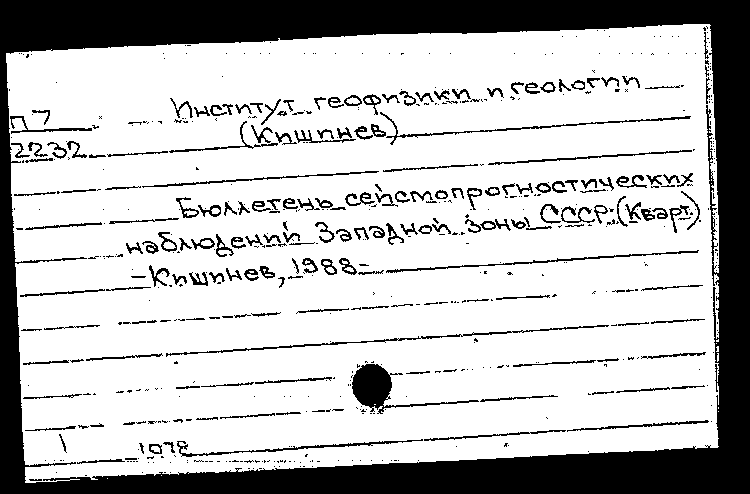 Институт геофизики и геологии
П7
(Кишинев)
2232
Бюллетень сейсмопрогностических
наблюдений Западной зоны СССР: (Кварт.)
-Кишинев, 1988-
1 1078